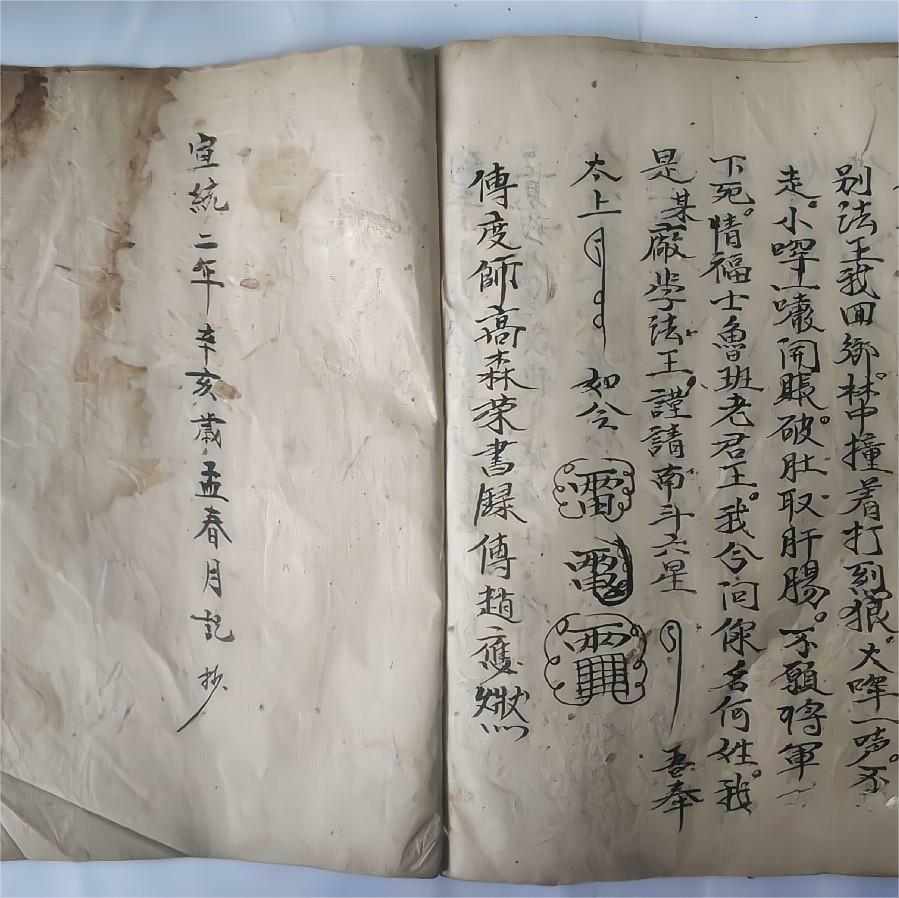 别法王我回鄉林中撞着打烈狼。大喍一声不
走。小喍一嚷開賬破肚取肝腸。不願将軍
下死。情福士魯班老君王。我今问你名何姓。我
是某廠学法王。謹請南斗六星 吾奉
太上 如令
傳度師高森荣書録傳趙應
宣統二年辛亥歲孟春月記抄